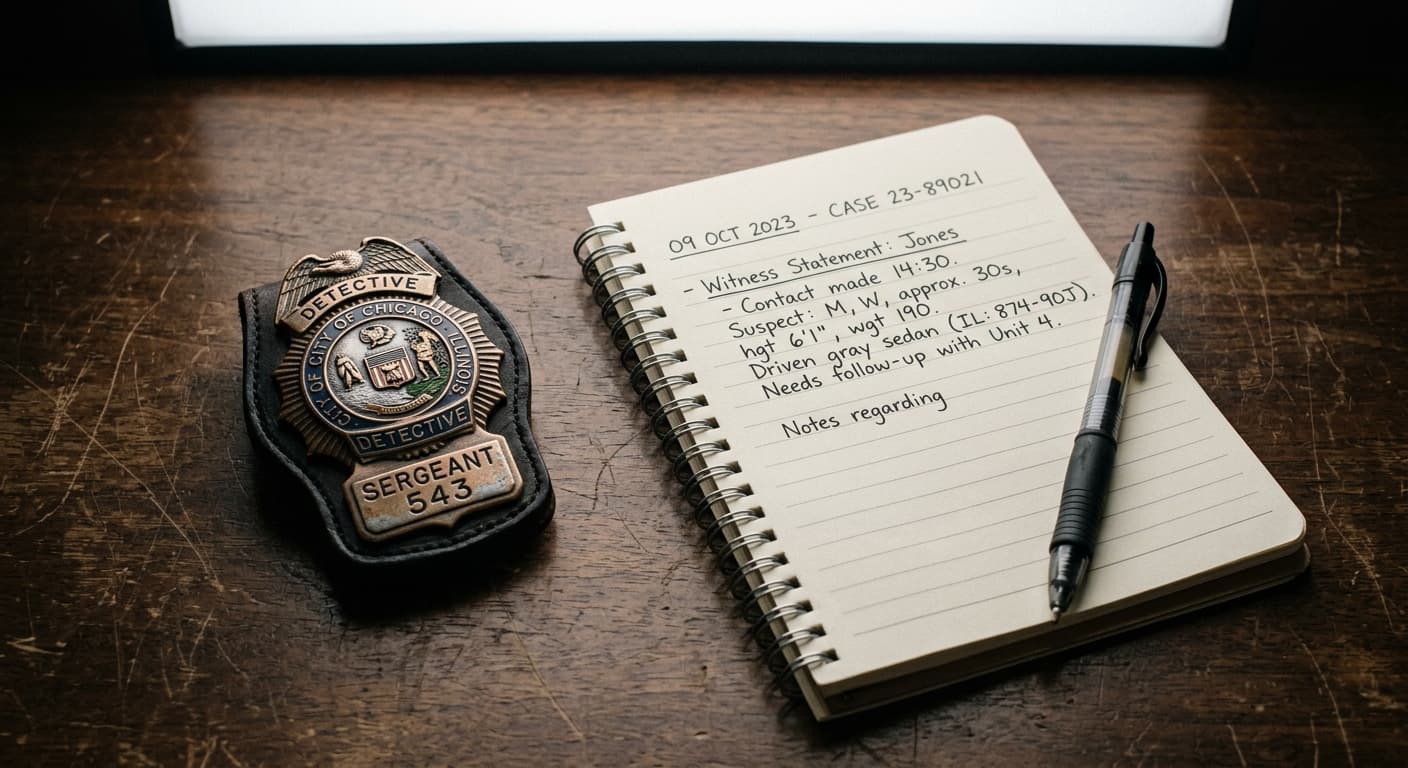 DETECTIVE
CITY OF CHICAGO · ILLINOIS
DETECTIVE
SERGEANT
543
09 OCT 2023 - CASE 23-89021
- Witness Statement: Jones
- Contact made 14:30.
Suspect: M, W, approx. 30s,
hgt 6'1", wgt 190.
Driven gray sedan (IL: 874-90J).
Needs follow-up with Unit 4.
Notes regarding